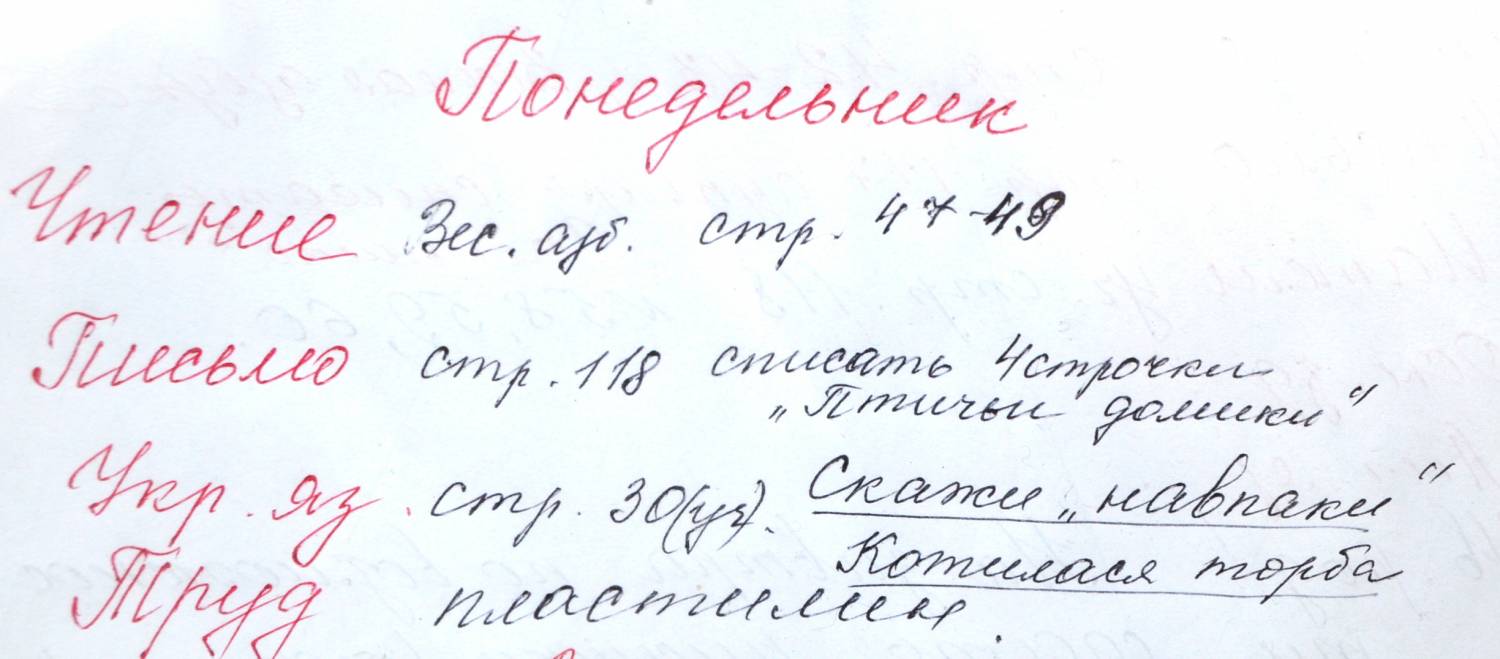 Понедельник
Чтение Вес. азб. стр. 47-49
Письмо стр. 118 списать 4 строчки
„Птичьи домики“
Укр. яз. стр. 30(уч). Скажи „навпаки“
Котилася торба
Труд пластилин.